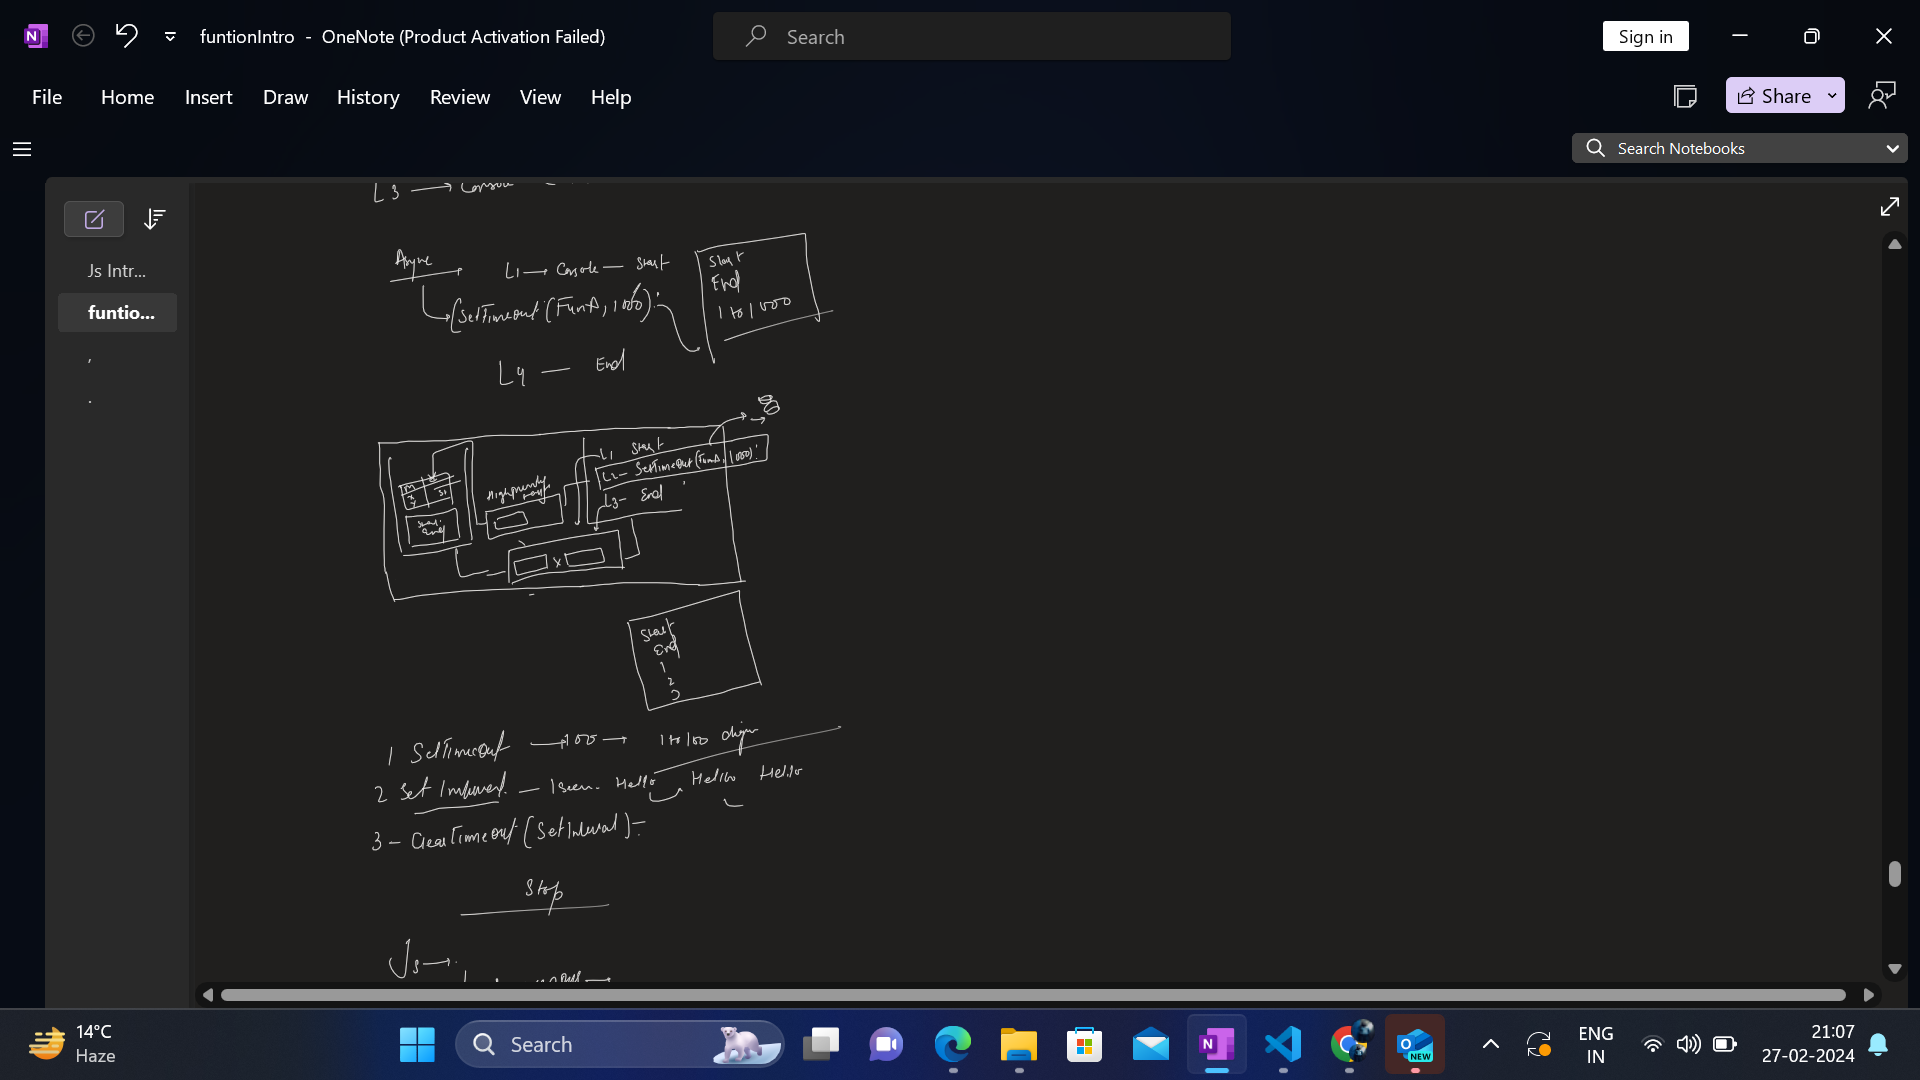 funtionIntro - OneNote (Product Activation Failed)
Search
Sign in
File Home Insert Draw History Review View Help
Share
Search Notebooks
Js Intr...
funtio...
,
.
L3 → Console
L1 → Console — Start
SetTimeout (FunA, 1000);
L4 — End
Start
End
1 to 1000
L1 Start
L2 - SetTimeout (FunA, 1000);
L3 - End
Start
End
1
2
3
1 SetTimeout → 100 → 1 to 100
2 Set — Hello Hello Hello
3 - ClearTimeout (SetInterval)
Stop
Js →
14°C
Haze
Search
NEW
ENG
IN
21:07
27-02-2024